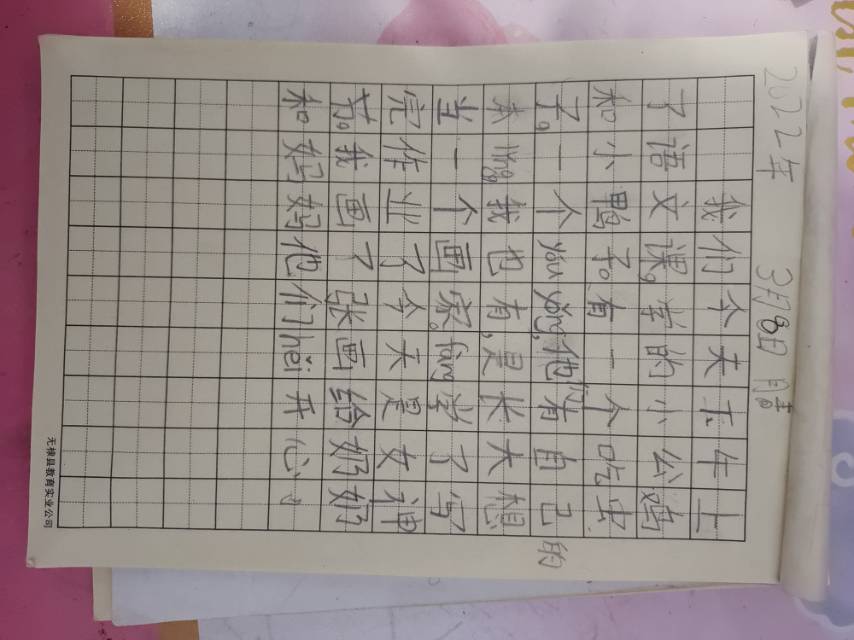 2022年 3月8日 晴
我们今天下午上
了语文课,学的小公鸡
和小鸭子。有一个吃虫
子。一个yóu yǒng,他们有自己的
本领。我也有,是长大想
当一个画家。fàng学了写
完作业了今天是女神
节。我画了张画给奶奶
和妈妈他们hěi开心。
无棣县教育实业公司